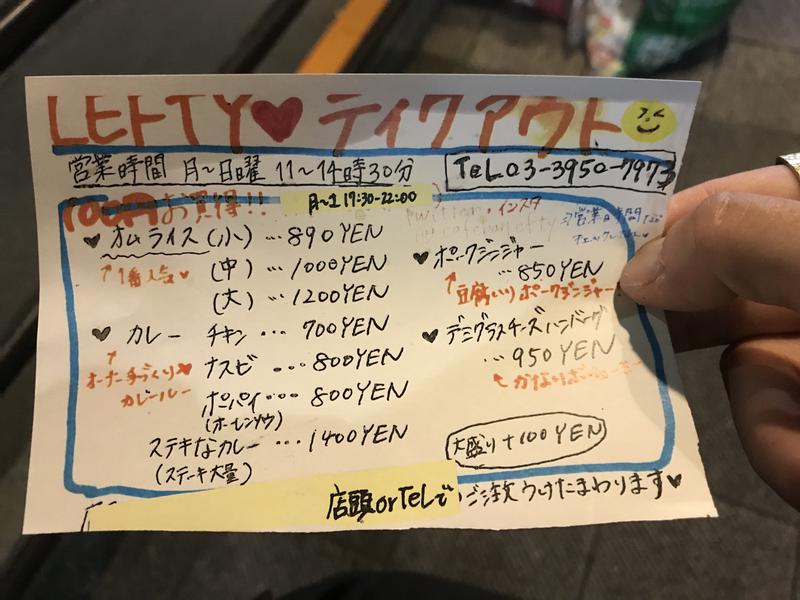 LEFTY♥ティクアウト
営業時間 月〜日曜 11〜14時30分
TeL03-3950-7973
100円お買得!!
月〜土 17:30-22:00
twitter・インスタ
営業日時間
♥オムライス(小)…890YEN
↑1番人気♥
(中)…1000YEN
(大)…1200YEN
♥カレー チキン…700YEN
↑オーナー手づくり♥カレールー
ナスビ…800YEN
ポパイ…800YEN
(ホーレンソウ)
ステキなカレー…1400YEN
(ステーキ大量)
♥ポークジンジャー
…850YEN
↑豆腐いりポークジンジャー
♥デミグラスチーズハンバーグ
…950YEN
大盛り+100YEN
店頭orTeLで
ご注文うけたまわります♥